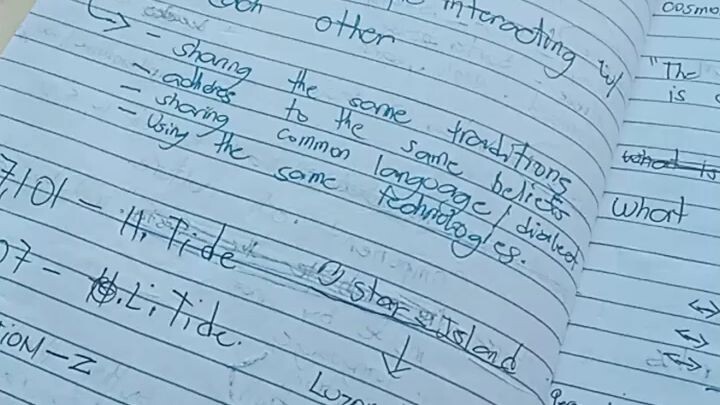 each other interacting w/
- sharing the same traditions
- adheres to the same beliefs
- sharing common language/dialect
- using the same technologies.
7,101 - H. Tide
07 - L. Tide.
Star Island
ION-Z
cosmo
"The
is
What